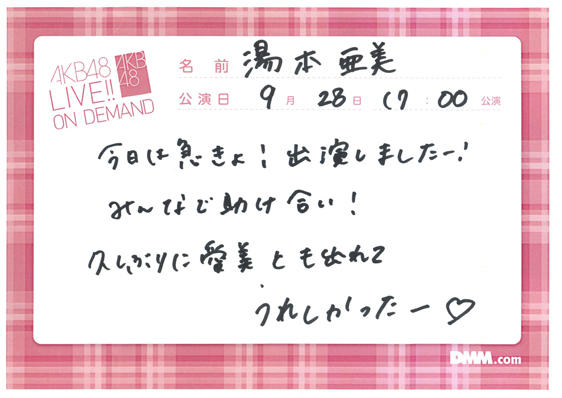 AKB48
LIVE!!
ON DEMAND
AKB
48
名前 湯本亜美
公演日 9月28日 17:00 公演
今日は急きょ！出演しましたー！
みんなで助け合い！
久しぶりに愛美とも出れて
うれしかったー♡
DMM.com